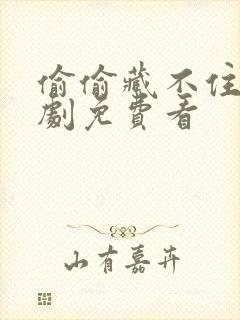 偷偷藏不住
劇免費看
山有嘉卉